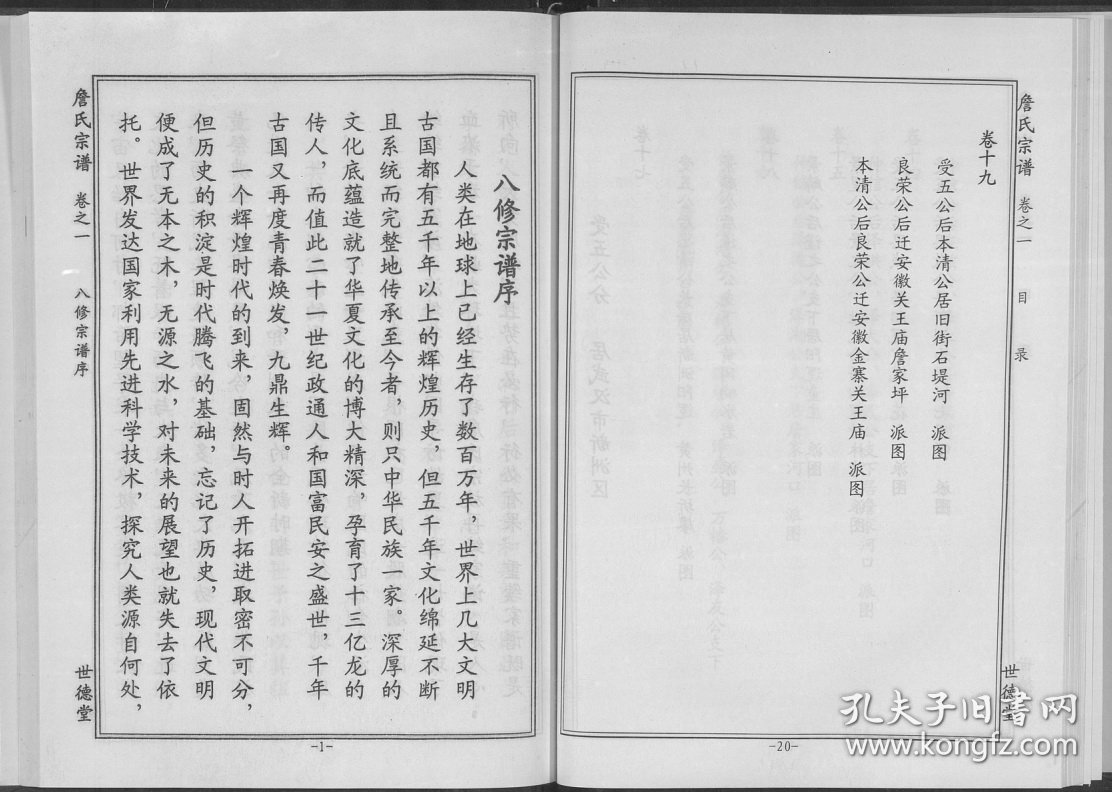 詹氏宗谱 卷之一 目录 世德堂
卷十九
受五公后本清公居旧街石堤河 派图
良荣公后迁安徽关王庙詹家坪 派图
本清公后良荣公迁安徽金寨关王庙 派图
-20-
八修宗谱序
人类在地球上已经生存了数百万年，世界上几大文明
古国都有五千年以上的辉煌历史，但五千年文化绵延不断
且系统而完整地传承至今者，则只中华民族一家。深厚的
文化底蕴造就了华夏文化的博大精深，孕育了十三亿龙的
传人，而值此二十一世纪政通人和国富民安之盛世，千年
古国又再度青春焕发，九鼎生辉。
一个辉煌时代的到来，固然与时人开拓进取密不可分，
但历史的积淀是时代腾飞的基础，忘记了历史，现代文明
便成了无本之木，无源之水，对未来的展望也就失去了依
托。世界发达国家利用先进科学技术，探究人类源自何处，
詹氏宗谱 卷之一 八修宗谱序 世德堂
-1-
孔夫子旧书网
www.kongfz.com